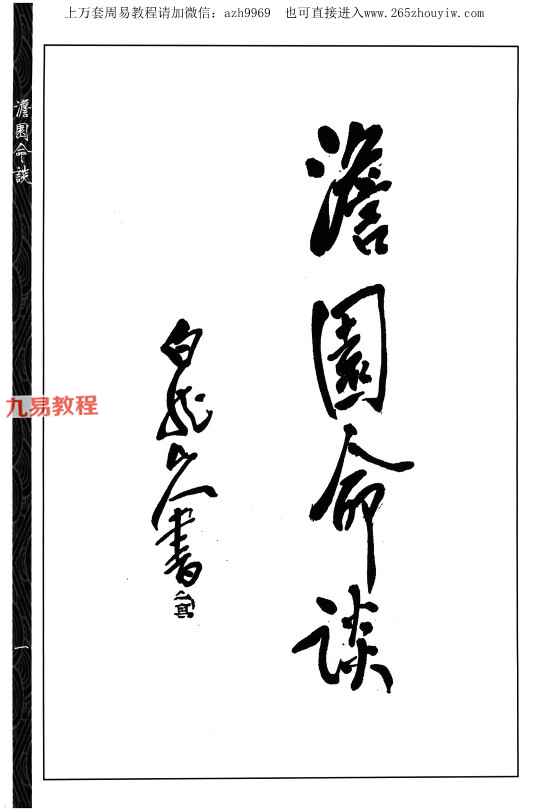 上万套周易教程请加微信：azh9969 也可直接进入www.265zhouyiw.com
澹園命談
澹園命談
白龍山人書
九易教程
一